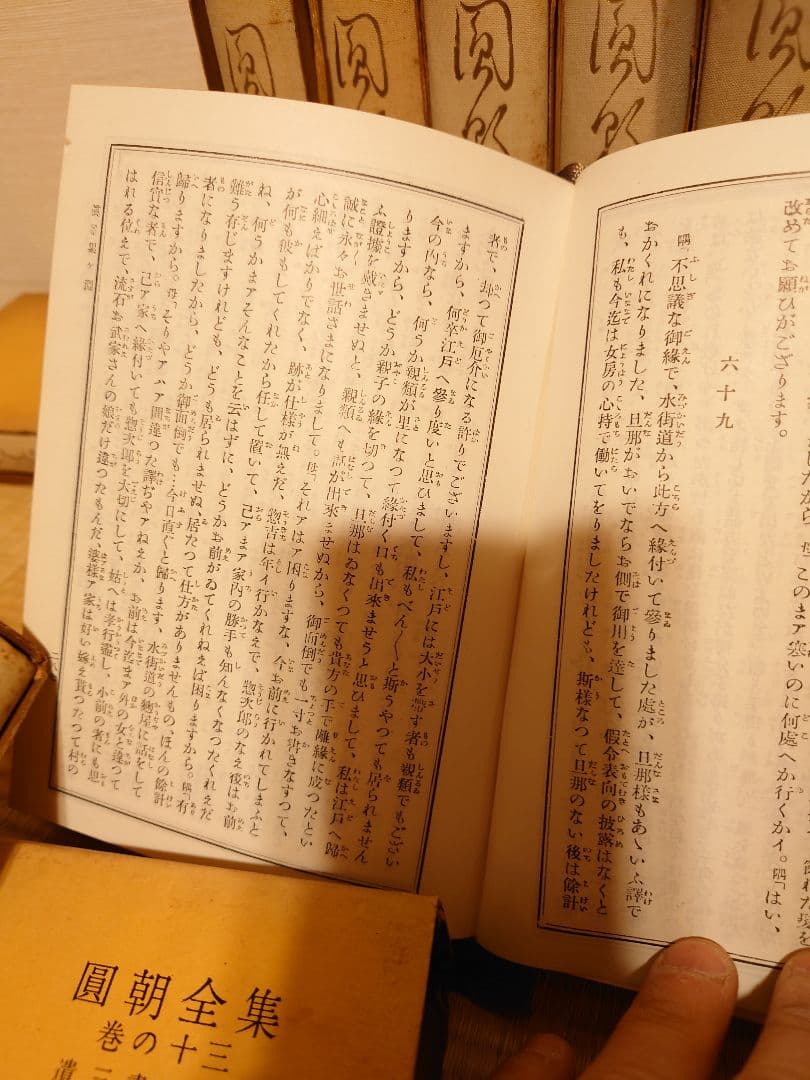 改めてお願ひがござります。
六十九
隅「不思議な御緣で、水街道から此方へ緣付いて參りました處が、旦那様もあゝいふ譯で
おかくれになりました、旦那がおいでならお側で御用を達して、假令表向の披露はなくと
も、私も今迄は女房の心持で働いてをりましたけれども、斯様なつて旦那のない後は餘計
者で、却つて御厄介になる許りでございますし、江戸には大小を帶す者も親類でござい
ますから、何卒江戸へ參り度いと思ひまして、私もべん〳〵と斯うやつても居られません
今の内なら、何うか親類が里になつて緣付く口も出來ませうと思ひまして、私は江戸へ歸
りますから、どうか親子の緣を切つて、旦那はゐなくつても貴方の手で離緣に成つたとい
ふ證據を戴きませぬと、親類へも話が出來ませぬから、御面倒でも一寸お書きなすつて、
誠に永々お世話さまになりまして。母「それアはア困りますな、今お前に行かれてしまふと
心細えばかりでなく、跡が仕様が無えだ、惣吉は年イ行かなえで、惣次郎のなえ後はお前
が何も彼もしてくれたから任して置いて、己アまア家内の勝手も知んなくなつたくれえだ
ね、何うかまアそんなことを云はずに、どうかお前がゐてくれねえば困りますから。隅「有
難う存じますけれども、どうも居られませぬ、居たつて仕方がありませんもの、ほんの餘計
者になりましたから、どうか御面倒でも…今日直ぐと歸ります、水街道の麹屋に話をして
歸りますから。母「そりやアハア間違つた譯ぢやアねえか、お前は今迄まア外の女と違つて
信實な者で、己ア家へ緣付いても惣次郎を大切にして、姑へは孝行盡し、小前の者にも思
はれる位えで、流石お武家さんの娘だけ違つたもんだ、婆様ア家は好い嫁え貰つたつて村の
圓朝全集
巻の十三